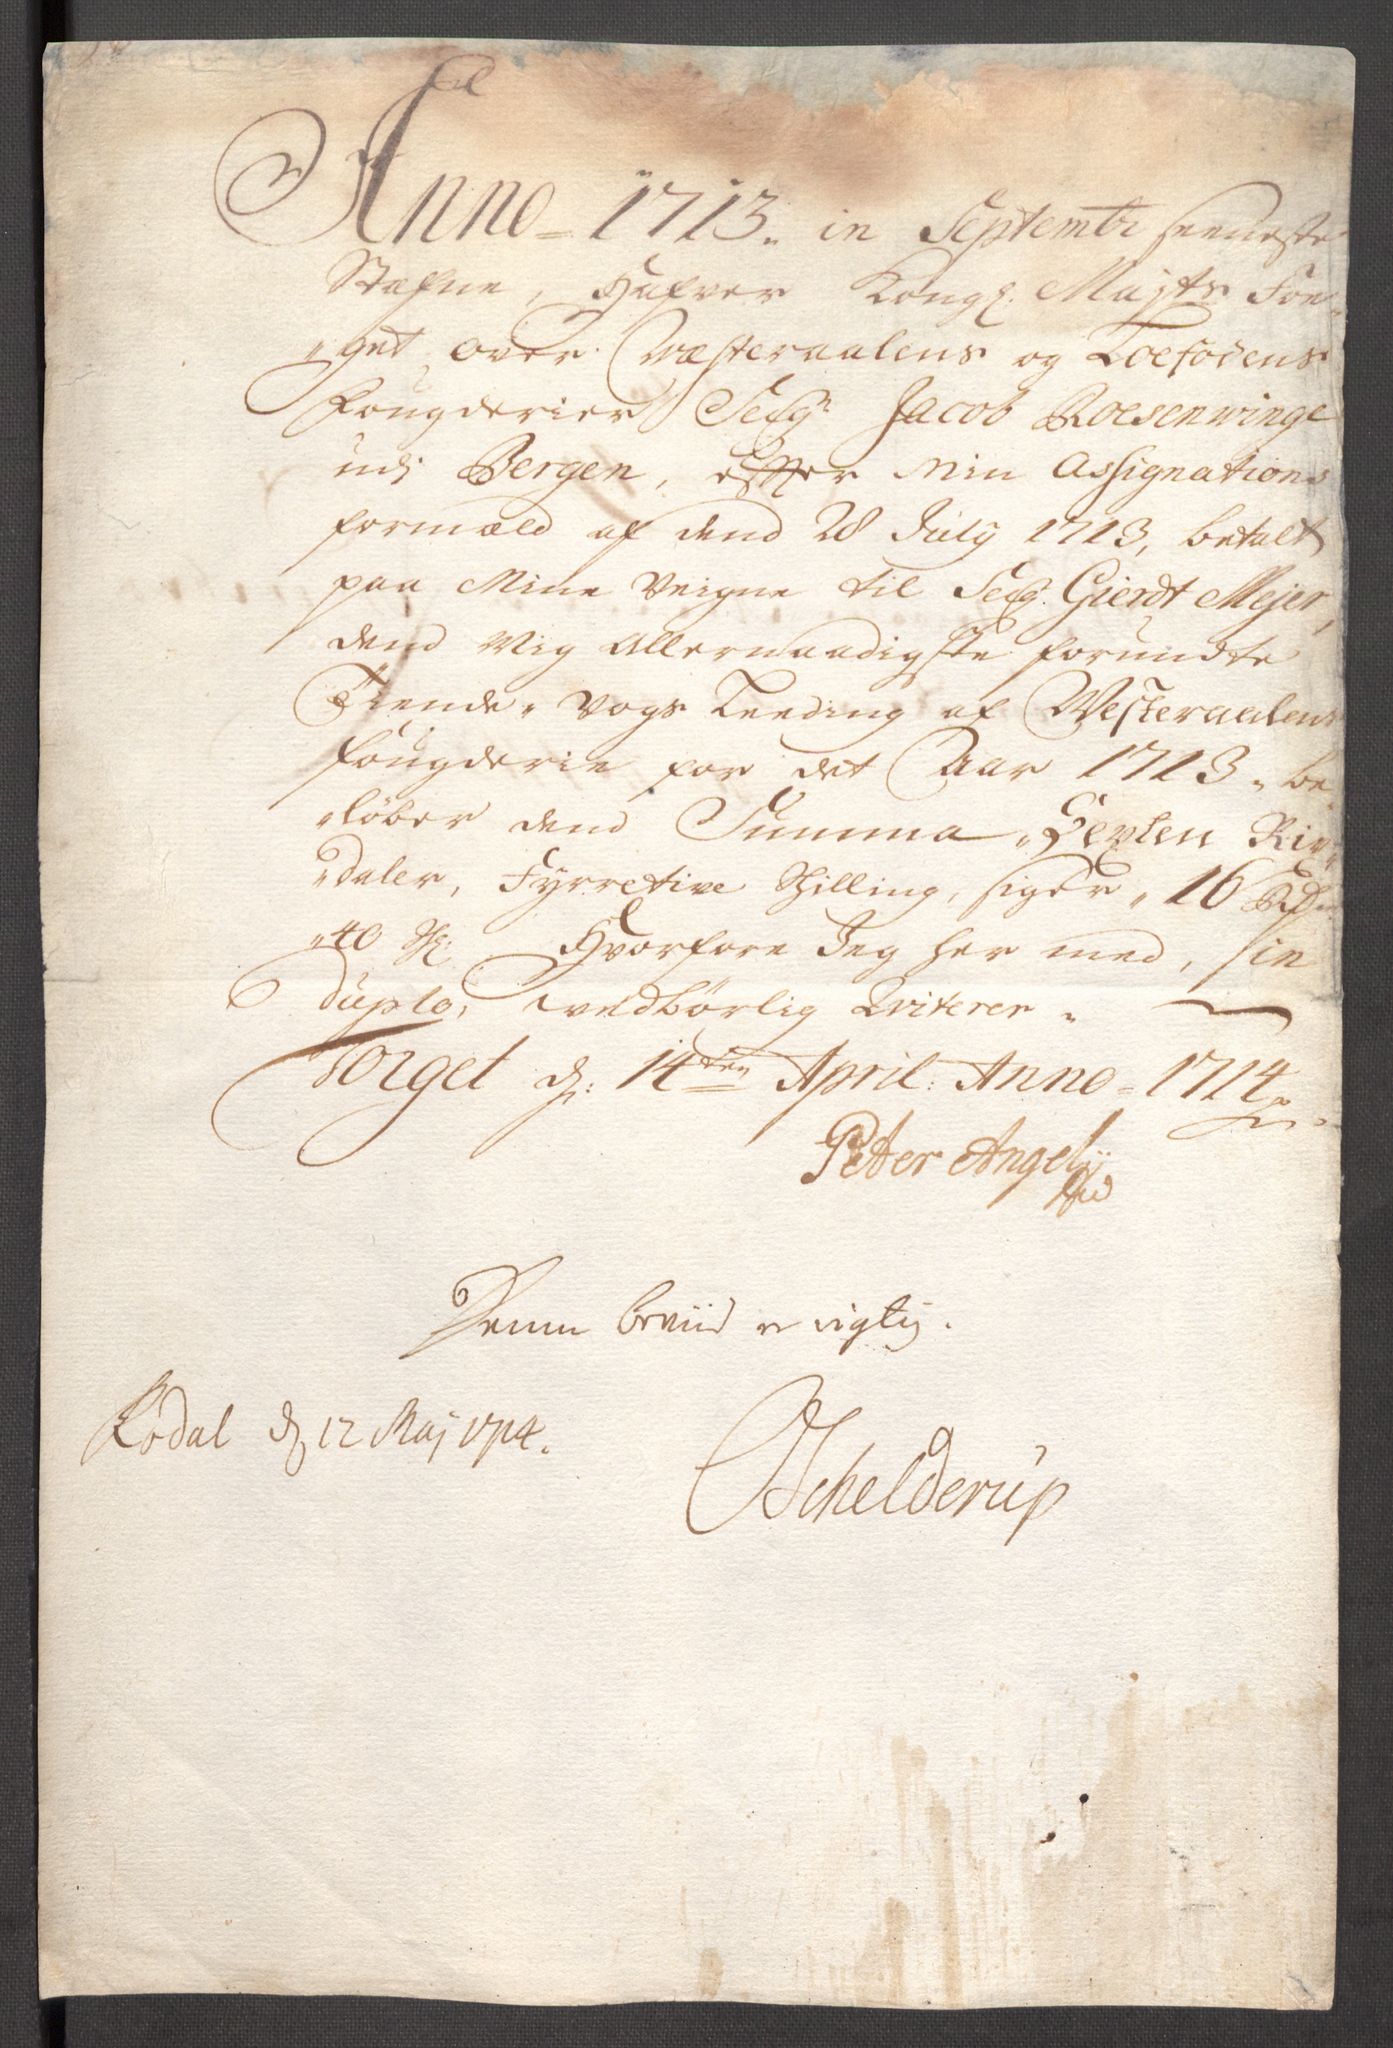 Anno 1713. in Septembr seeneste
Stæfne, Hafver Kongl. Majts Fou-
-get over Væsteraalens og Loefodens
fougderier Seigr Jacob Roesenwinge
udj Bergen, effter Min Assignations
formæld af dend 28 July 1713, betalt
paa Mine Veigne til Seigr. Gierdt Mejer,
dend Mig Allernaadigste forundte
Tiende Vogs Leeding af Westeraalens
fougderie for det Aar 1713. be-
-løber dend Summa, Sexten Rix-
-daler, Fyrretive Schilling, siger, 16 Rdr
40 sk: Hvorfore Jeg her med, in
duplo, uedbørlig Qviterer.
Torget d: 14ten April: Anno 1714
Peter Angelj
Denne beviis er rigtig.
Rødal d 12 Maj 1714.
Schelderup